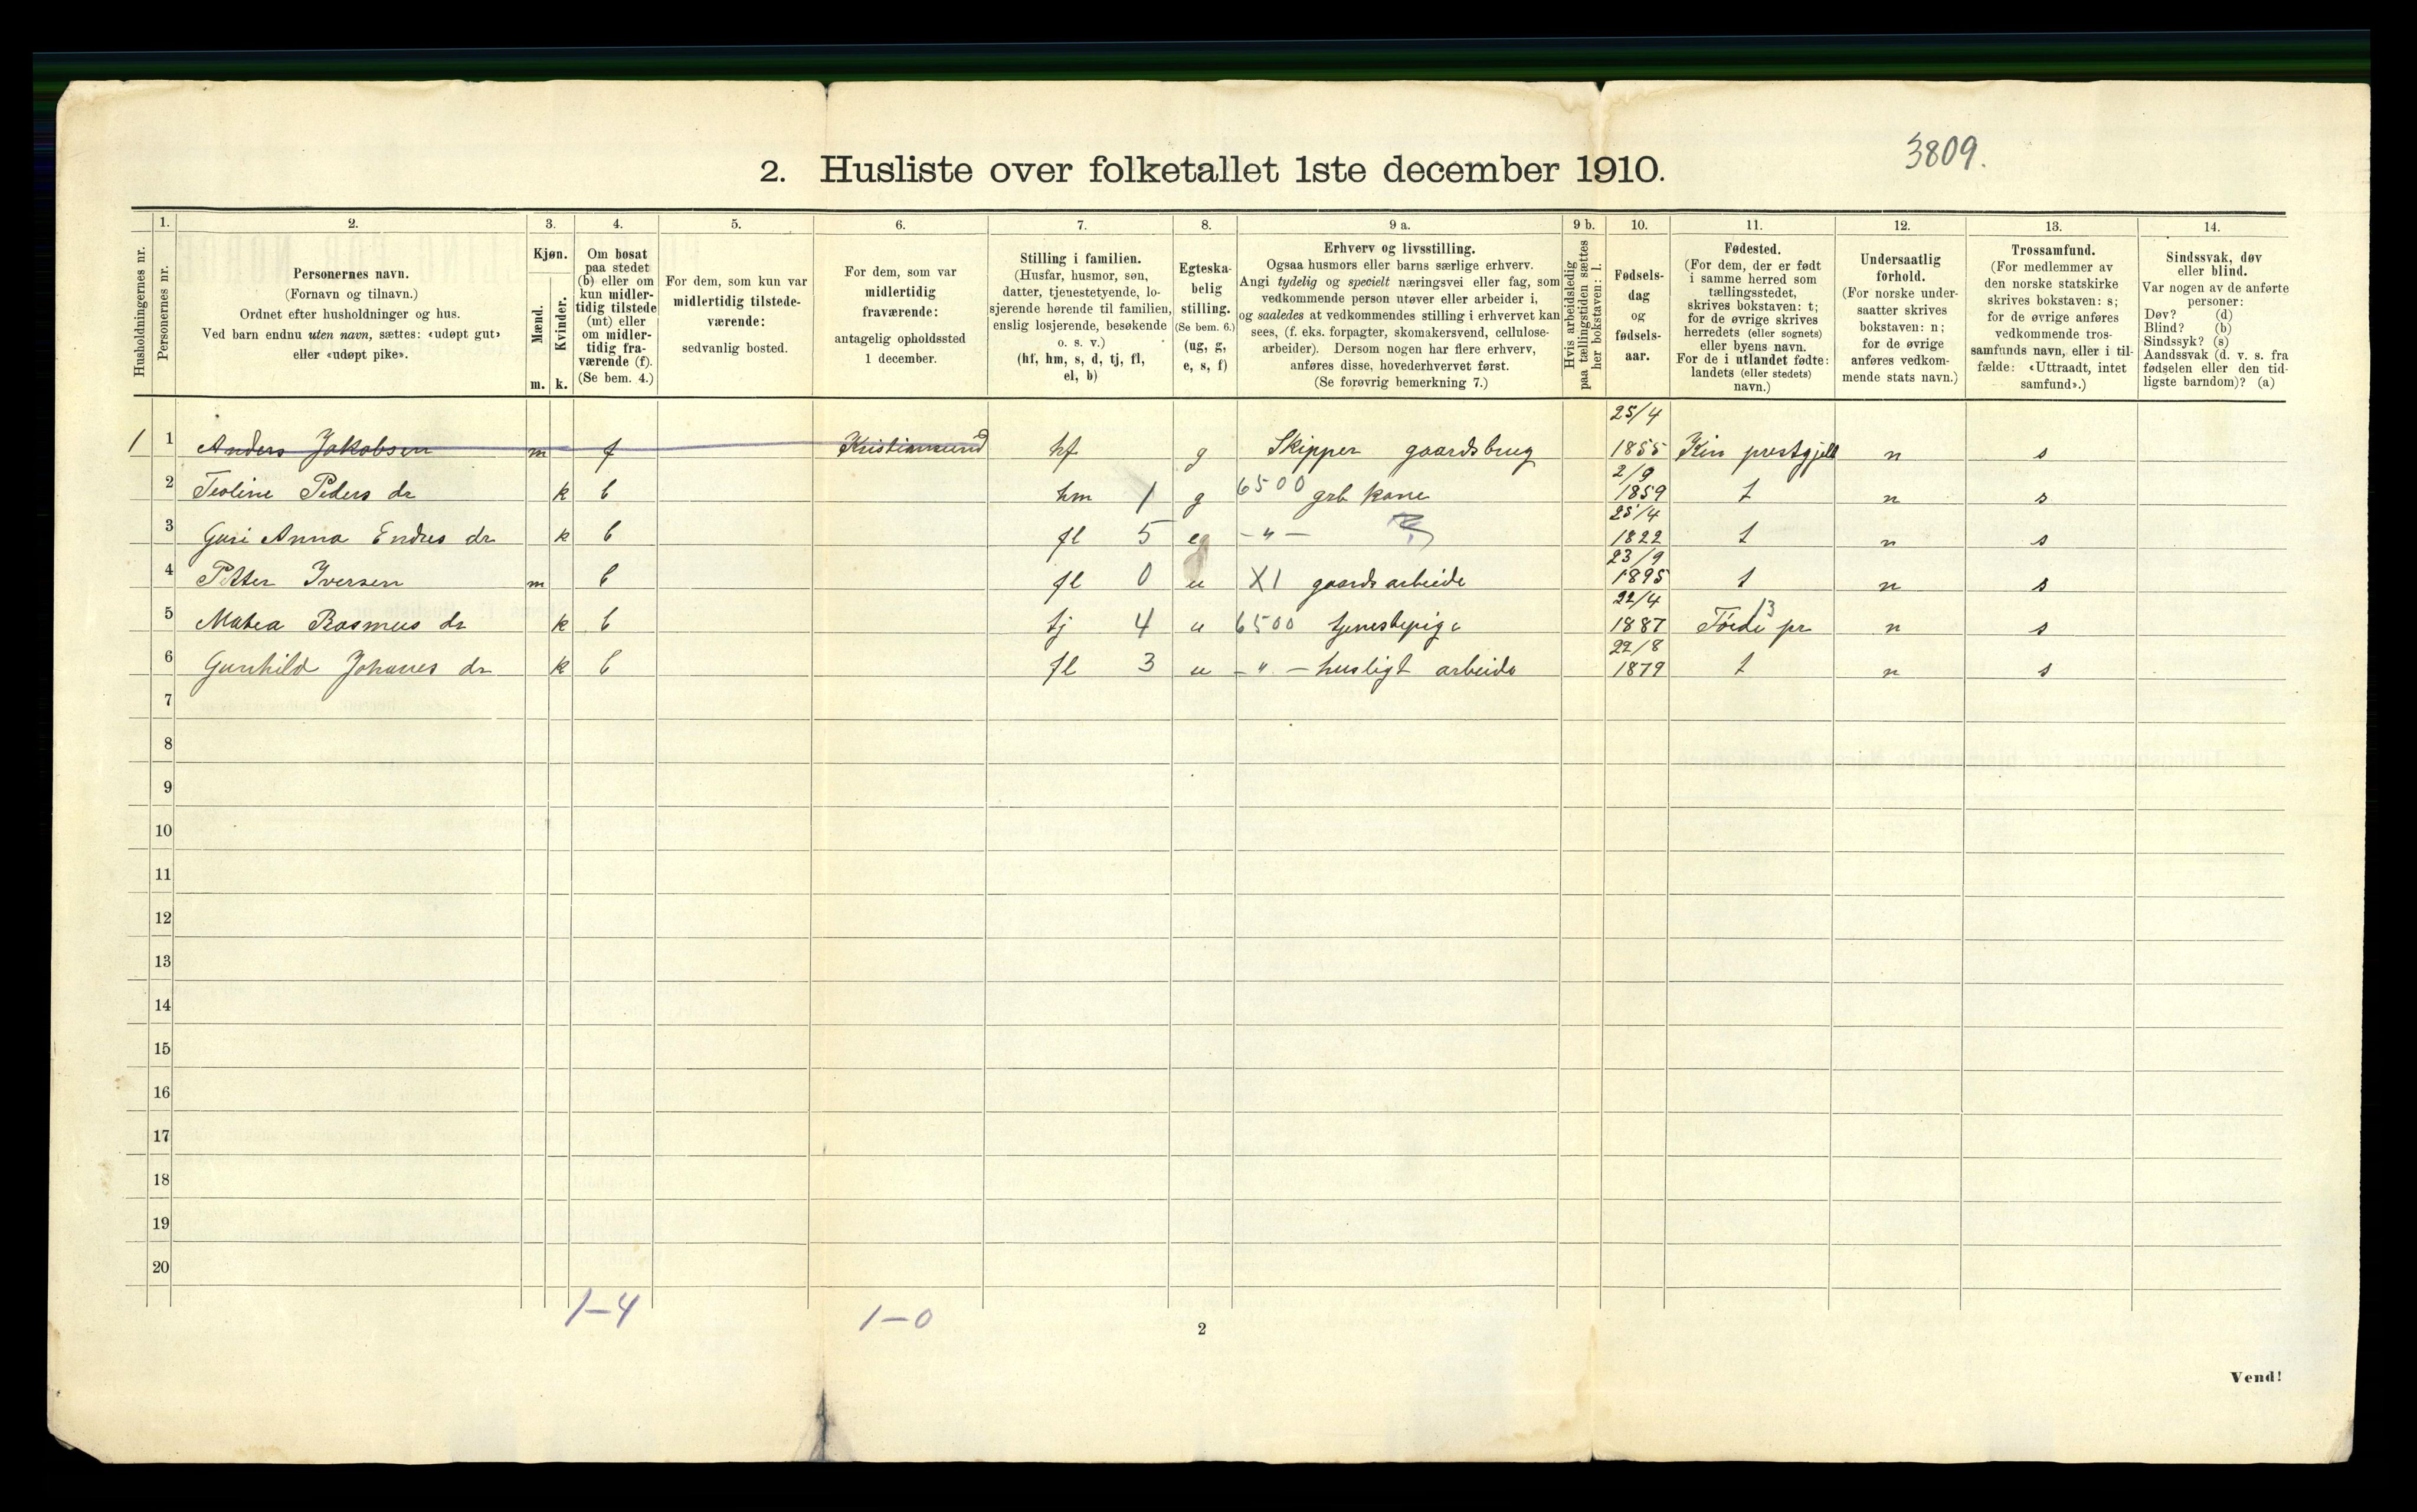 3809.
2. Husliste over folketallet 1ste december 1910.
Husholdningernes nr.
1.
Personernes nr.
2.
Personernes navn.
(Fornavn og tilnavn.)
Ordnet efter husholdninger og hus.
Ved barn endnu uten navn, sættes: «udøpt gut»
eller «udøpt pike».
3.
Kjøn.
Mænd.
Kvinder.
m. k.
4.
Om bosat
paa stedet
(b) eller om
kun midler-
tidig tilstede
(mt) eller
om midler-
tidig fra-
værende (f).
(Se bem. 4.)
5.
For dem, som kun var
midlertidig tilstede-
værende:
sedvanlig bosted.
6.
For dem, som var
midlertidig
fraværende:
antagelig opholdssted
1 december.
7.
Stilling i familien.
(Husfar, husmor, søn,
datter, tjenestetyende, lo-
sjerende hørende til familien,
enslig losjerende, besøkende
o. s. v.)
(hf, hm, s, d, tj, fl,
el, b)
8.
Egteska-
belig
stilling.
(Se bem. 6.)
(ug, g,
e, s, f)
9 a.
Erhverv og livsstilling.
Ogsaa husmors eller barns særlige erhverv.
Angi tydelig og specielt næringsvei eller fag, som
vedkommende person utøver eller arbeider i,
og saaledes at vedkommendes stilling i erhvervet kan
sees, (f. eks. forpagter, skomakersvend, cellulose-
arbeider). Dersom nogen har flere erhverv,
anføres disse, hovederhvervet først.
(Se forøvrig bemerkning 7.)
9 b.
Hvis arbeidsledig
paa tællingstiden sættes
her bokstaven: l.
10.
Fødsels-
dag
og
fødsels-
aar.
11.
Fødested.
(For dem, der er født
i samme herred som
tællingsstedet,
skrives bokstaven: t;
for de øvrige skrives
herredets (eller sognets)
eller byens navn.
For de i utlandet fødte:
landets (eller stedets)
navn.)
12.
Undersaatlig
forhold.
(For norske under-
saatter skrives
bokstaven: n;
for de øvrige
anføres vedkom-
mende stats navn.)
13.
Trossamfund.
(For medlemmer av
den norske statskirke
skrives bokstaven: s;
for de øvrige anføres
vedkommende tros-
samfunds navn, eller i til-
fælde: «Uttraadt, intet
samfund».)
14.
Sindssvak, døv
eller blind.
Var nogen av de anførte
personer:
Døv? (d)
Blind? (b)
Sindssyk? (s)
Aandssvak (d. v. s. fra
fødselen eller den tid-
ligste barndom)? (a)
1 1 Anders Jakobsen m f Kristiansund hf g Skipper gaardsbrug 25/4 1855 Kin prestgjell n s
2 Teoline Peders dr k b hm 1 g 6500 grb kone 2/9 1859 t n s
3 Guri Anna Endres dr k b fl 5 e -"- 25/4 1822 t n s
4 Petter Iversen m b fl 0 u X1 gaardsarbeide 23/9 1895 t n s
5 Matea Rasmus dr k b tj 4 u 6500 tjenestepige 22/4 1887 Førde pr 13 n s
6 Gunhild Johanes dr k b fl 3 u -"- husligt arbeide 22/8 1879 t n s
7
8
9
10
11
12
13
14
15
16
17
18
19
20
1-4 1-0
2
Vend!